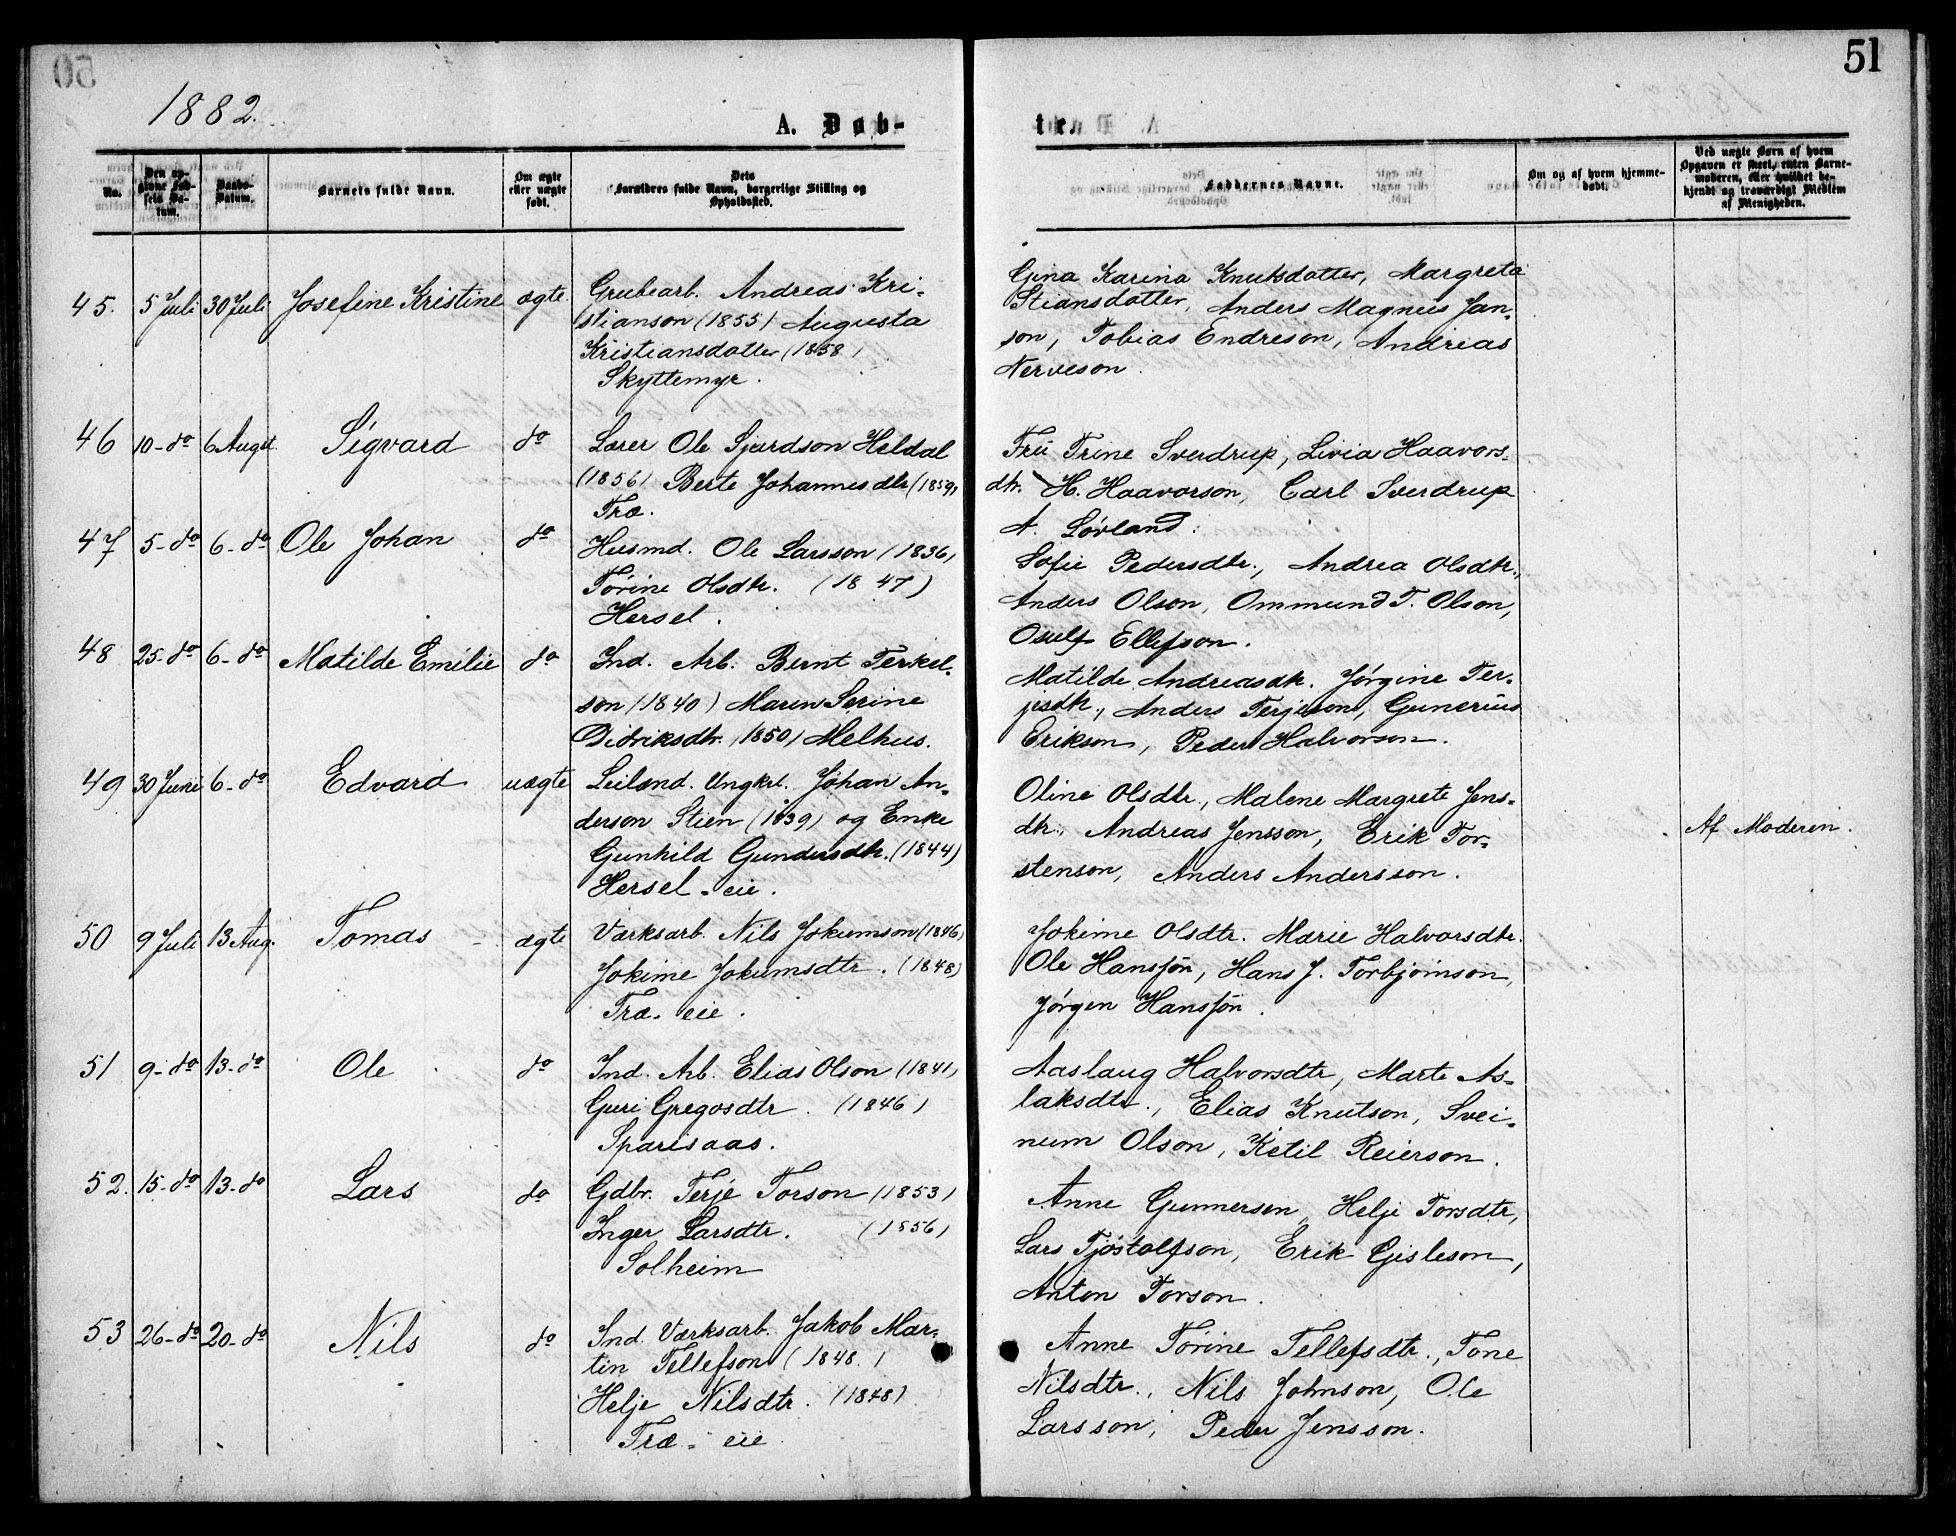 50
51
1882.
A. Døb-
te.
No.
Den op-
givne Fød-
sels Da-
tum.
Daabs-
Datum.
Barnets fulde Navn.
Om ægte
eller uægte
født.
Dets
Forældres fulde Navn, borgerlige Stilling og
Opholdssted.
Faddernes Navne.
Om og af hvem hjemme-
døbt.
Ved uægte Børn af hvem
Opgaven er skeet, enten Barne-
moderen, eller hvilket be-
kjendt og troværdigt Medlem
af Menigheden.
45. 5 Juli 30 Juli Josefine Kristine ægte Grubearb. Andreas Kri-
stianson (1855) Augusta
Kristiansdatter (1858)
Skyttemyr.
Gina Karina Knutsdatter, Margreta
Stiansdatter, Anders Magnus Jan-
son, Tobias Endreson, Andreas
Nerveson.
46 10-do 6 Augst. Sigvard do Lærer Ole Sjurdson Heldal
(1856) Berte Johannesdtr (1859)
Træ.
Fru Trine Sverdrup, Livia Haavors-
dtr. H. Haavorson, Carl Sverdrup
A. Løvland.
47 5-do 6-do Ole Johan do Husmd. Ole Larsson (1836)
Tørine Olsdtr. (1847)
Hersel.
Sofie Pedersdtr., Andrea Olsdtr.,
Anders Olson, Ommund T. Olson,
Osulf Ellefson.
48 25-do 6-do Matilde Emilie do Ind. Arb. Bernt Terkel-
son (1840) Maren Serine
Didriksdtr. (1850) Melhus.
Matilde Andreasdtr. Jørgine Ter-
jesdtr., Anders Terjeson, Gunerius
Erikson, Peder Halvorson.
49 30 Juni 6-do Edvard uægte Leilænd. Ungkrl. Johan An-
derson Stien (1839) og Enke
Gunhild Gundersdtr. (1844)
Hersel-eie.
Oline Olsdtr., Malene Margrete Jens-
dtr., Andreas Jensson, Erik Tor-
stenson, Anders Andersson.
Af Moderen.
50 9 Juli 13 Aug. Tomas ægte Værksarb. Nils Jokumson (1846)
Jokime Jokumsdtr. (1848)
Træ-eie.
Jokime Olsdtr. Marie Halvorsdtr.
Ole Hanssøn, Hans J. Torbjørnson,
Jørgen Hanssøn.
51 9-do 13-do Ole do Ind. Arb. Elias Olson (1841)
Guri Gregosdtr. (1846)
Sparisaas.
Aaslaug Halvorsdtr, Marte As-
laksdtr., Elias Knutson, Svei-
num Olson, Ketil Reierson.
52. 15-do 13-do Lars do Gdbr. Terje Torson (1853)
Inger Larsdtr. (1856)
Solheim
Anne Gunnersen, Helje Torsdtr,
Lars Tjøstolfson, Erik Gisleson,
Anton Torson.
53 26-do 20-do Nils do Ind. Værksarb. Jakob Mar-
tin Tellefson (1848.)
Helje Nilsdtr. (1848)
Træ-eie
Anne Tørine Tellefsdtr., Tone
Nilsdtr., Nils Johnson, Ole
Larsson, Peder Jensson.